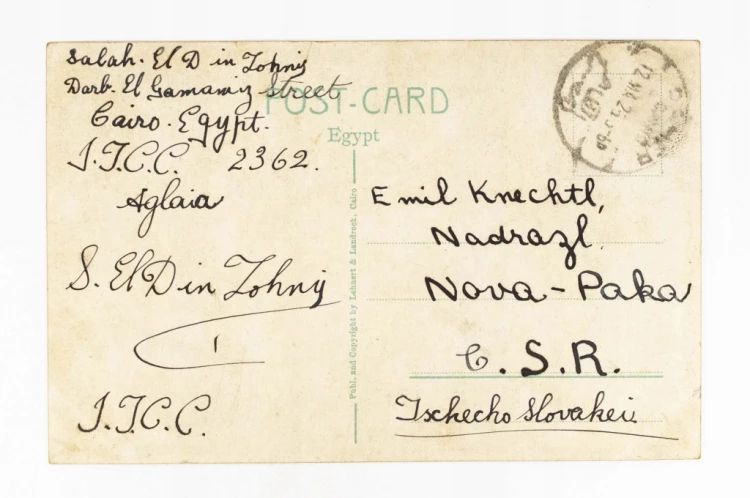 Salah. El Din Zohny
Darb. El Gamamiz Street
Cairo. Egypt.
I.T.C.C. 2362.
Aglaia
S. El Din Zohny
1
I.T.C.C.
POST-CARD
Egypt
Publ. and Copyright by Lehnert & Landrock, Cairo
Emil Knechtl,
Nadrazl
Nova-Paka
C. S. R.
Tschecho Slovakei